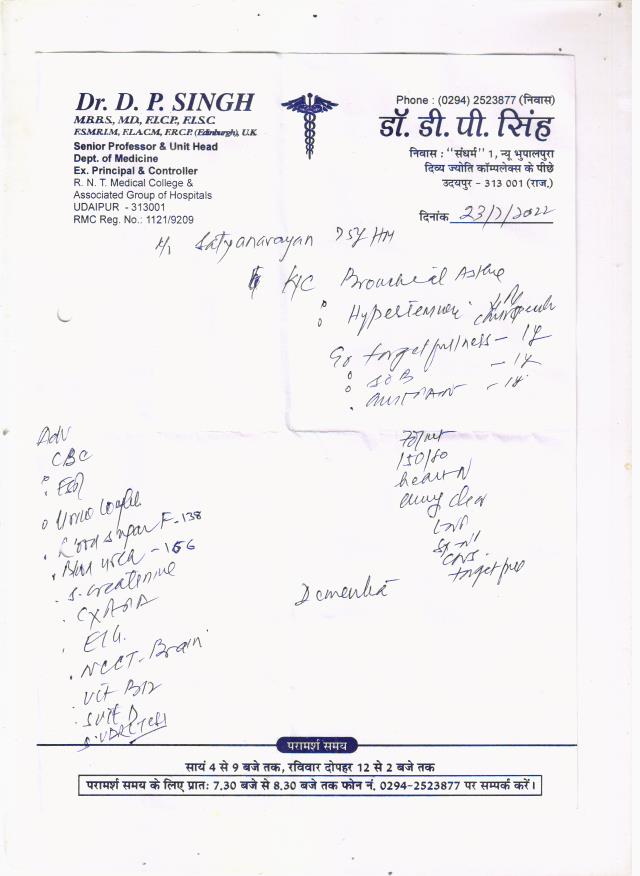 Dr. D. P. SINGH
M.B.B.S., M.D., F.I.C.P., F.I.S.C.
F.S.M.R.I.M., F.I.A.C.M., F.R.C.P. (Edinburgh), U.K
Senior Professor & Unit Head
Dept. of Medicine
Ex. Principal & Controller
R. N. T. Medical College &
Associated Group of Hospitals
UDAIPUR - 313001
RMC Reg. No.: 1121/9209
Phone : (0294) 2523877 (निवास)
डॉ. डी. पी. सिंह
निवास : "संधर्म" 1, न्यू भुपालपुरा
दिव्य ज्योति कॉम्पलेक्स के पीछे
उदयपुर - 313 001 (राज.)
दिनांक 23/7/2022
Satyanarayan 75y HM
K/C Bronchial
Hypertension
forgetfullness - 1y
SOB - 1y
- 1y
Adv
CBC
ESR
Urine
Blood sugar F - 138
Blood urea - 166
S. creatinine
CXR PA
ECG.
NCCT - Brain
Vit B12
S Vit D
S. VDRL Test
150/80
heart N
clear
CNS.
Dementia
परामर्श समय
सायं 4 से 9 बजे तक, रविवार दोपहर 12 से 2 बजे तक
परामर्श समय के लिए प्रातः 7.30 बजे से 8.30 बजे तक फोन नं. 0294-2523877 पर सम्पर्क करें।